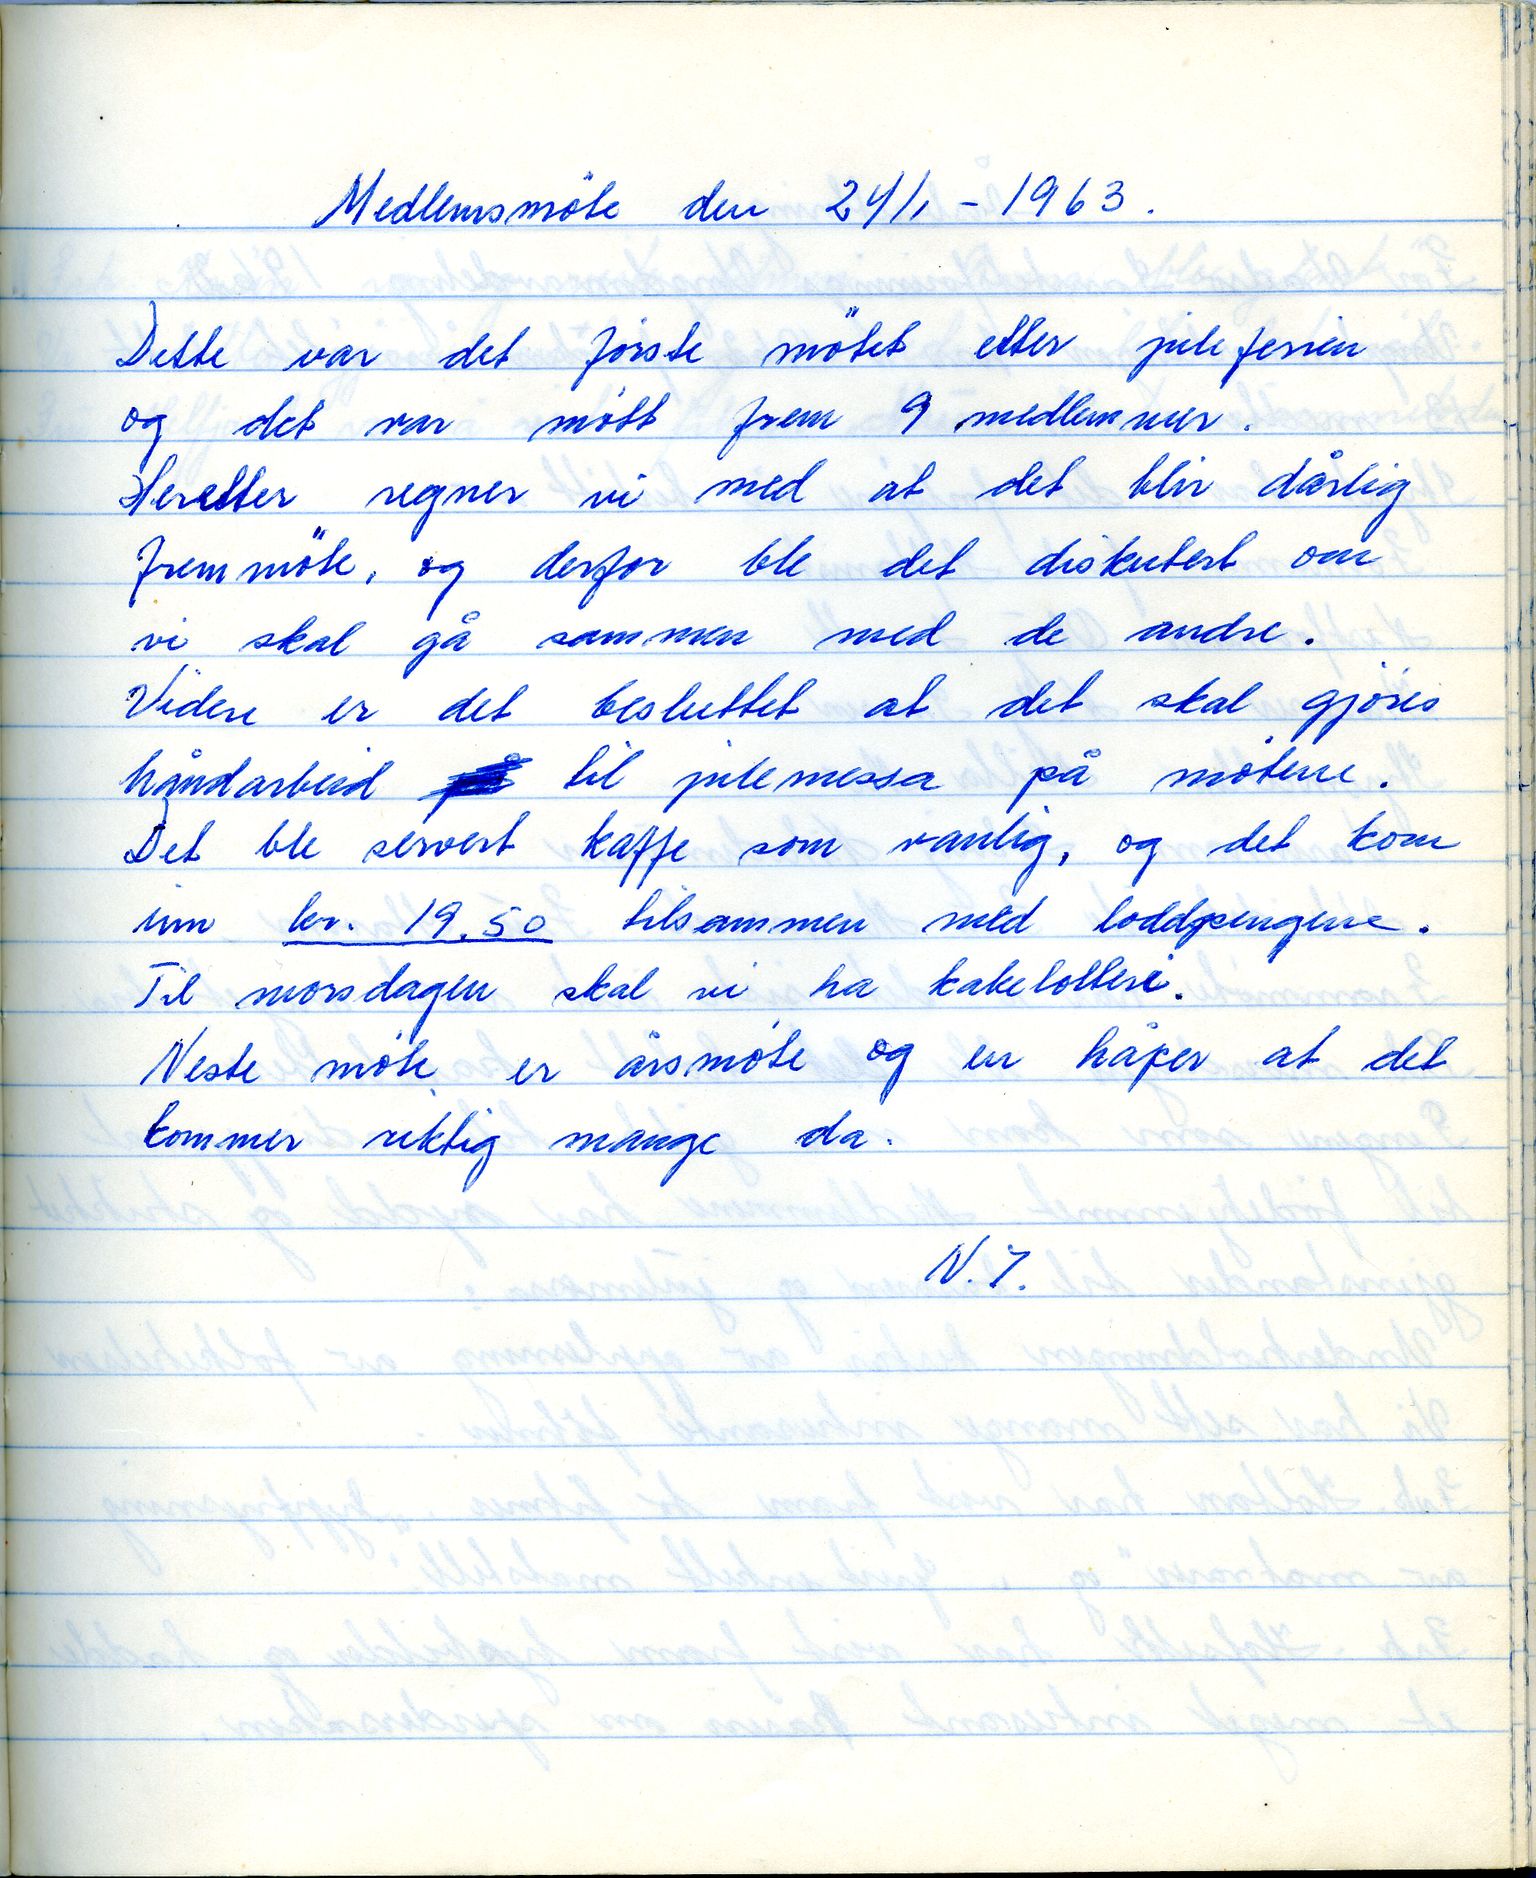 Medlemsmöte den 24/1 - 1963.
Dette var det förste mötet etter juleferien
og det var mött frem 9 medlemmer.
Heretter regner vi med at det blir dårlig
fremmöte, og derfor ble det diskutert om
vi skal gå sammen med de andre.
Videre er det besluttet at det skal gjöres
håndarbeid til julemessa på mötene.
Det ble servert kaffe som vanlig, og det kom
inn kr. 19.50 tilsammen med loddpengene.
Til morsdagen skal vi ha kakelotteri.
Neste möte er årsmöte og en håper at det
kommer riktig mange da.